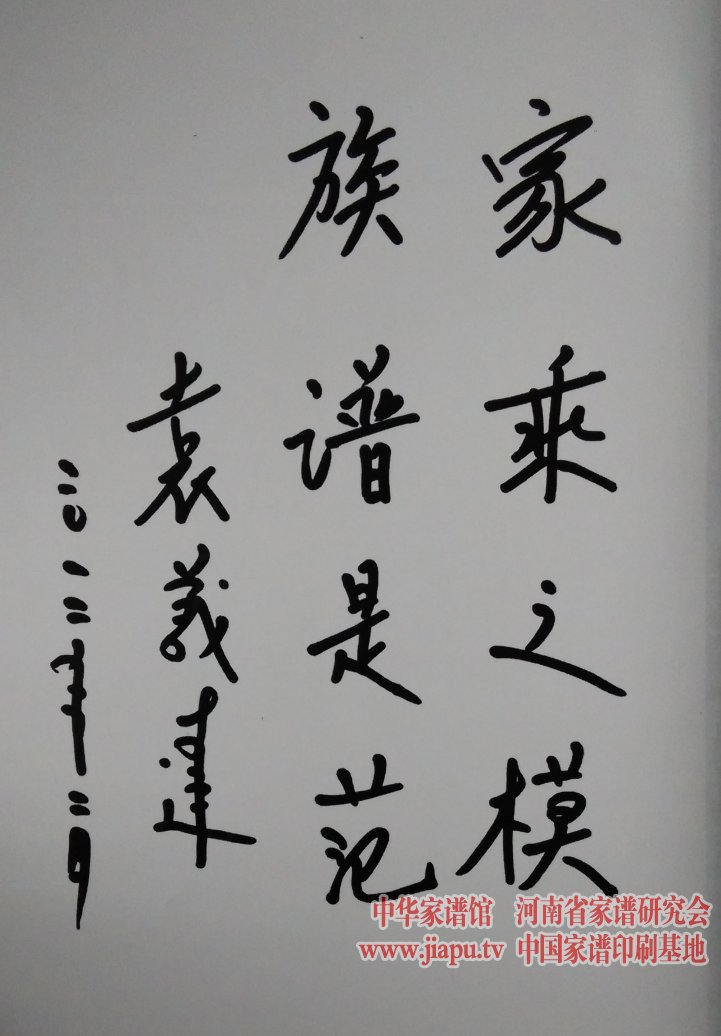 家乘之模
族谱是范
袁義達
二〇一二年二月
中华家谱馆 河南省家谱研究会
www.jiapu.tv 中国家谱印刷基地